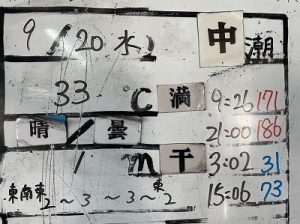 9/20 水 中潮
33 ℃ 満 9:26 171
晴/曇 21:00 186
1 m 干 3:02 31
東南東2～3～東2 15:06 73